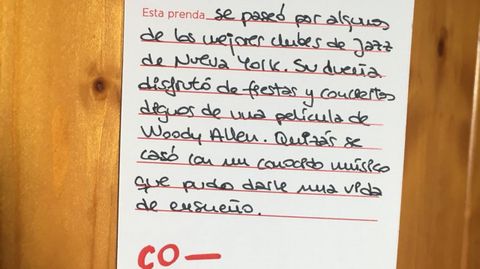 Esta prenda se paseó por algunos
de los mejores clubes de Jazz
de Nueva York. Su dueña
disfrutó de fiestas y conciertos
dignos de una película de
Woody Allen. Quizás se
casó con un conocido músico
que pudo darle una vida
de ensueño.
CO—